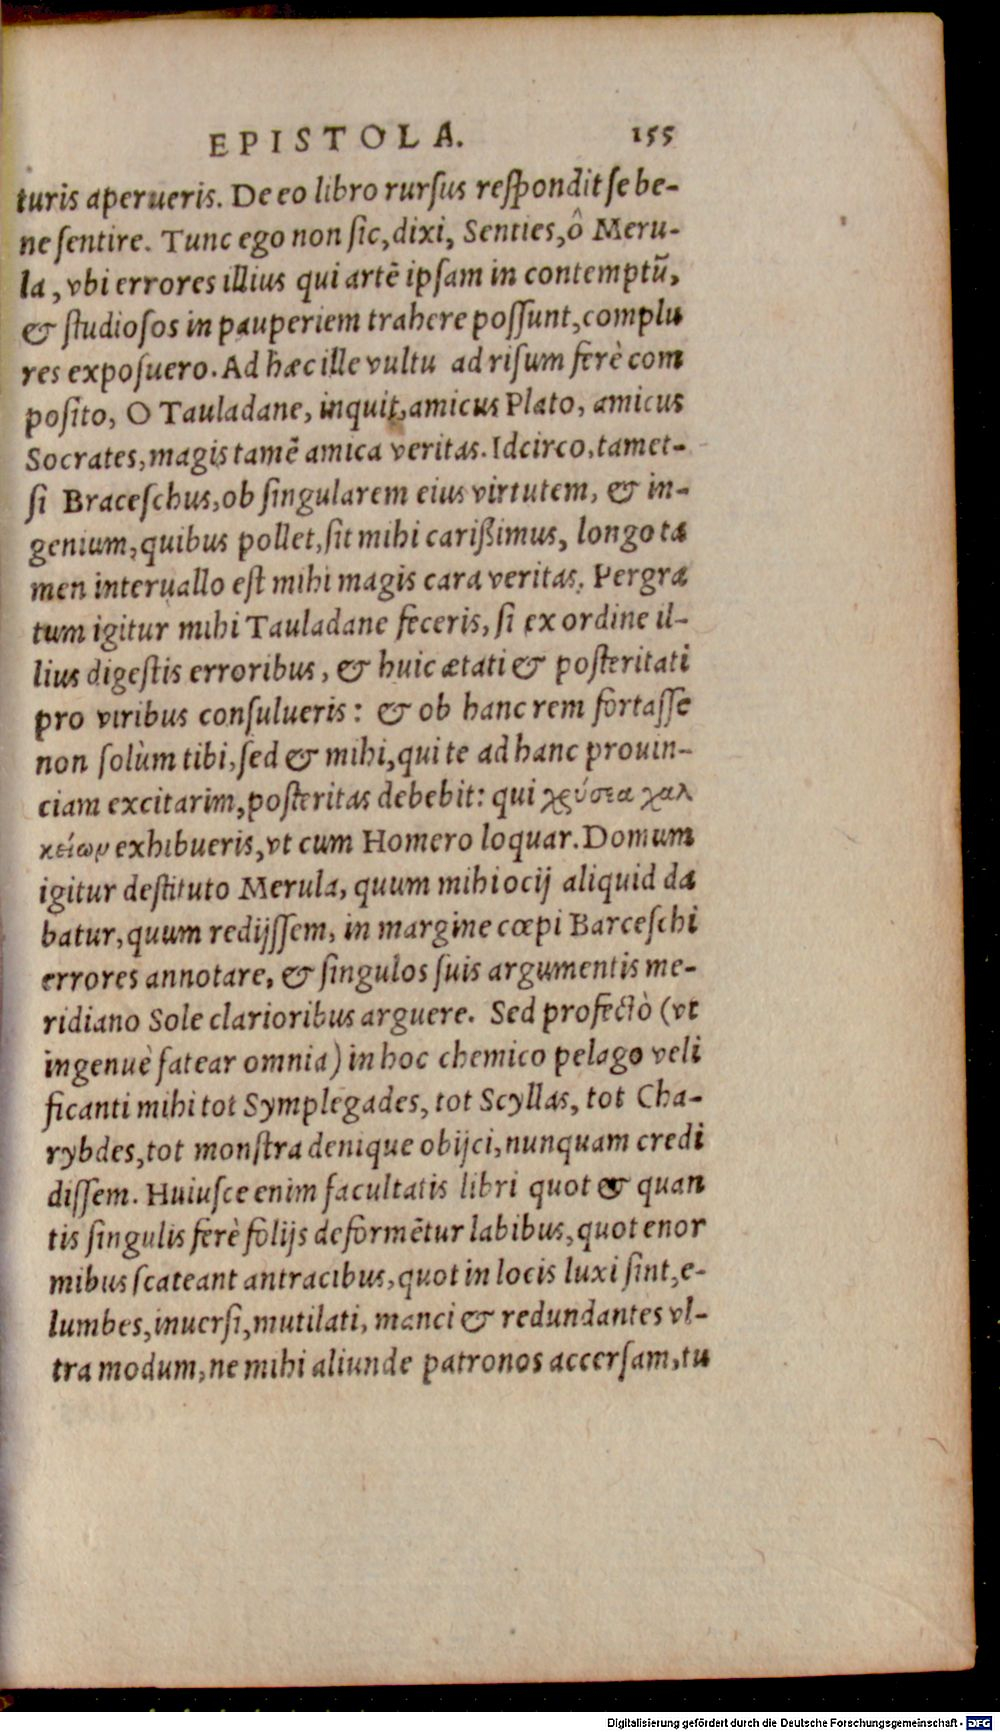 EPISTOLA. 155
turis aperueris. De eo libro rursus respondit se be-
ne sentire. Tunc ego non sic, dixi, Senties, ô Meru-
la, vbi errores illius qui artẽ ipsam in contemptũ,
& studiosos in pauperiem trahere possunt, complu
res exposuero. Ad hæc ille vultu ad risum ferè com
posito, O Tauladane, inquit, amicus Plato, amicus
Socrates, magis tamẽ amica veritas. Idcirco, tamet-
si Braceschus, ob singularem eius virtutem, & in-
genium, quibus pollet, sit mihi carißimus, longo ta
men interuallo est mihi magis cara veritas. Pergra
tum igitur mihi Tauladane feceris, si ex ordine il-
lius digestis erroribus, & huic ætati & posteritati
pro viribus consulueris: & ob hanc rem fortasse
non solùm tibi, sed & mihi, qui te ad hanc prouin-
ciam excitarim, posteritas debebit: qui χρύσεα χαλ
κείων exhibueris, vt cum Homero loquar. Domum
igitur destituto Merula, quum mihi ocij aliquid da
batur, quum redijssem, in margine cœpi Barceschi
errores annotare, & singulos suis argumentis me-
ridiano Sole clarioribus arguere. Sed profectò (vt
ingenuè fatear omnia) in hoc chemico pelago veli
ficanti mihi tot Symplegades, tot Scyllas, tot Cha-
rybdes, tot monstra denique obijci, nunquam credi
dissem. Huiusce enim facultatis libri quot & quan
tis singulis ferè folijs deformẽtur labibus, quot enor
mibus scateant antracibus, quot in locis luxi sint, e-
lumbes, inuersi, mutilati, manci & redundantes vl-
tra modum, ne mihi aliunde patronos accersam, tu
Digitalisierung gefördert durch die Deutsche Forschungsgemeinschaft - DFG